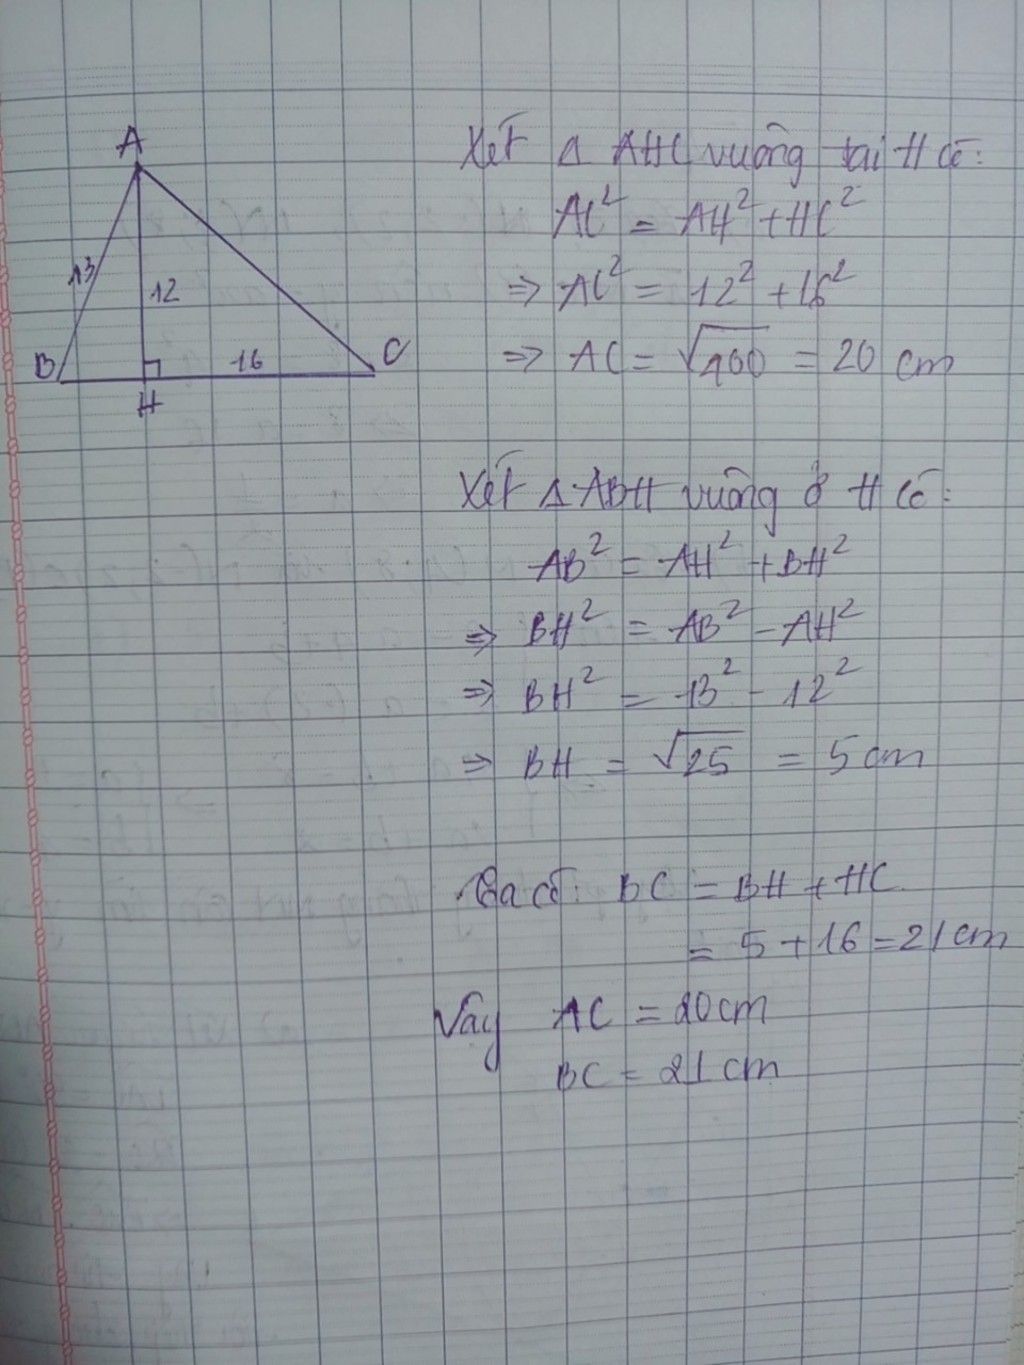 A
13
12
B
16
C
H
Xét Δ AHC vuông tại H có:
AC² = AH² + HC²
⇒ AC² = 12² + 16²
⇒ AC = √400 = 20 cm
Xét Δ ABH vuông ở H có:
AB² = AH² + BH²
⇒ BH² = AB² - AH²
⇒ BH² = 13² - 12²
⇒ BH = √25 = 5 cm
Ta có: BC = BH + HC
= 5 + 16 = 21 cm
Vậy AC = 20 cm
BC = 21 cm